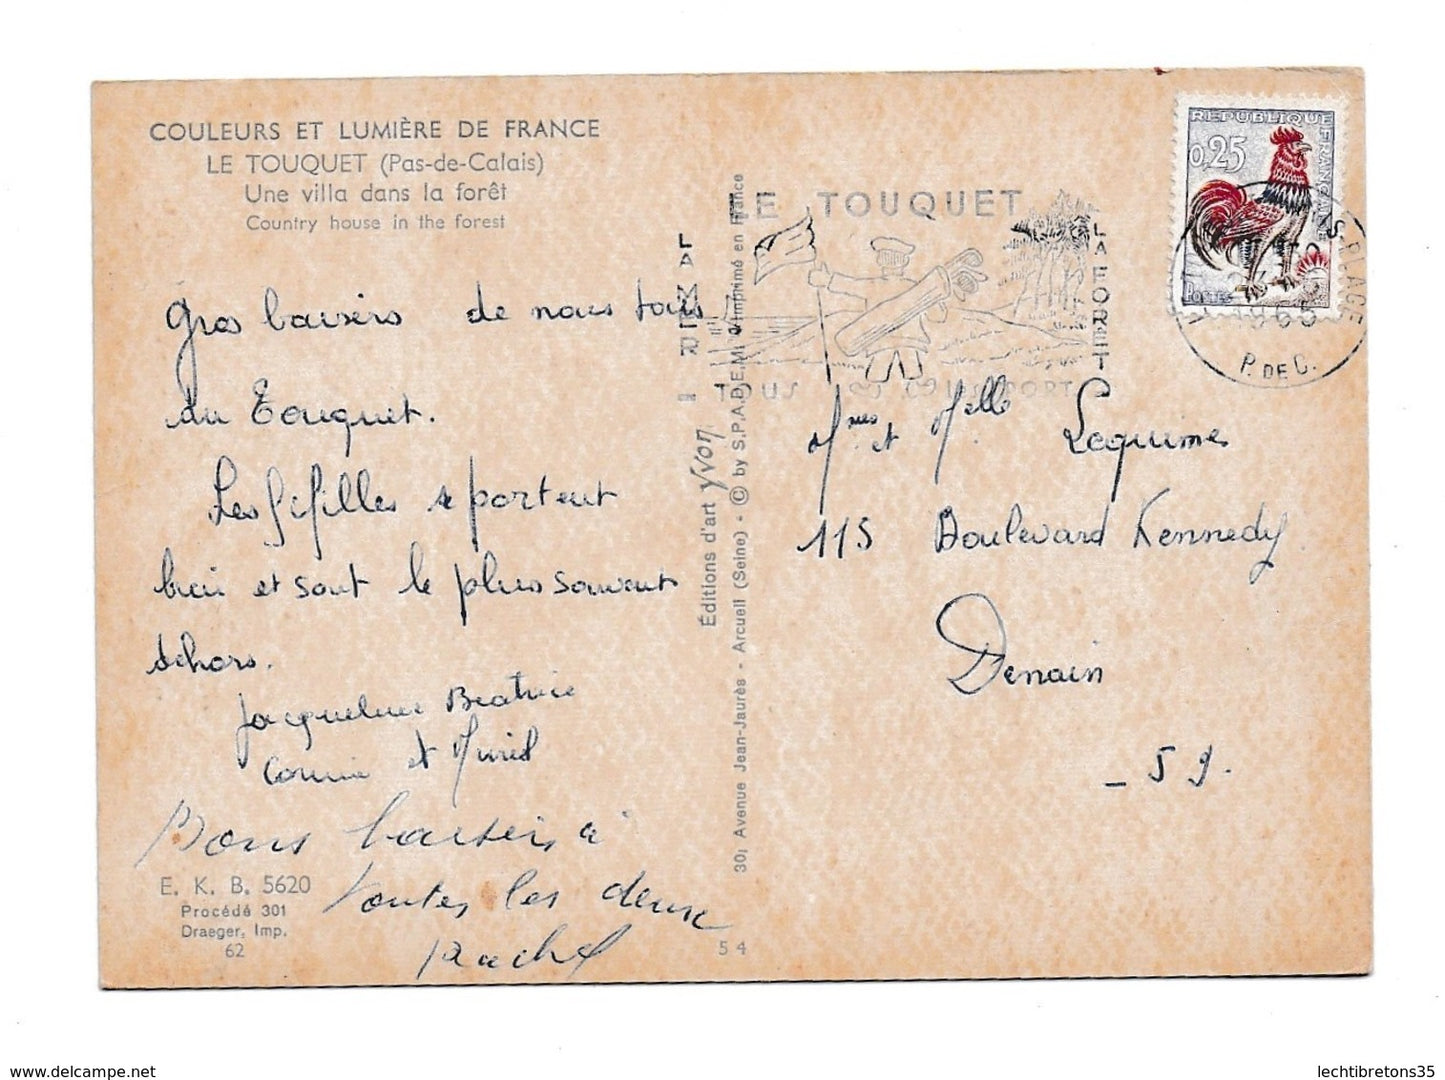 COULEURS ET LUMIÈRE DE FRANCE
LE TOUQUET (Pas-de-Calais)
Une villa dans la forêt
Country house in the forest
Gros baisers de nous tous
du Touquet.
Les fifilles se portent
bien et sont le plus souvent
dehors.
Jacqueline Beatrice
Corinne et Muriel
Bons baisers à
toutes les deux
Rachel
E. K. B. 5620
Procédé 301
Draeger, Imp.
62
Éditions d'art yvon
30, Avenue Jean-Jaurès - Arcueil (Seine) - © by S.P.A.D.E.M. Imprimé en France
54
LE TOUQUET
LA MER
LA FORET
TOUS
SPORT
REPUBLIQUE FRANÇAISE
0,25
POSTES
S-PLAGE
1965
P. DE C.
Mmes et Melle Lequime
115 Boulevard Kennedy
Denain
- 59.
delcampe.net
lechtibretons35